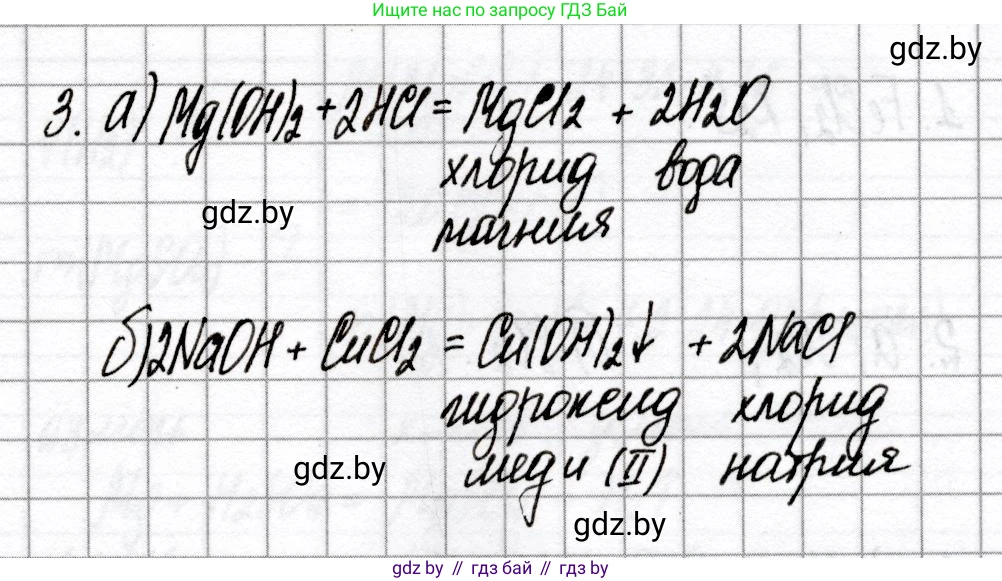 Ищите нас по запросу ГДЗ Бай
gdz.by
3. а) Mg(OH)₂ + 2HCl = MgCl₂ + 2H₂O
хлорид вода
gdz.by
магния
б) 2NaOH + CuCl₂ = Cu(OH)₂↓ + 2NaCl
гидроксид хлорид
gdz.by
меди (II) натрия
gdz.by
gdz.by // гдз бай // гдз by